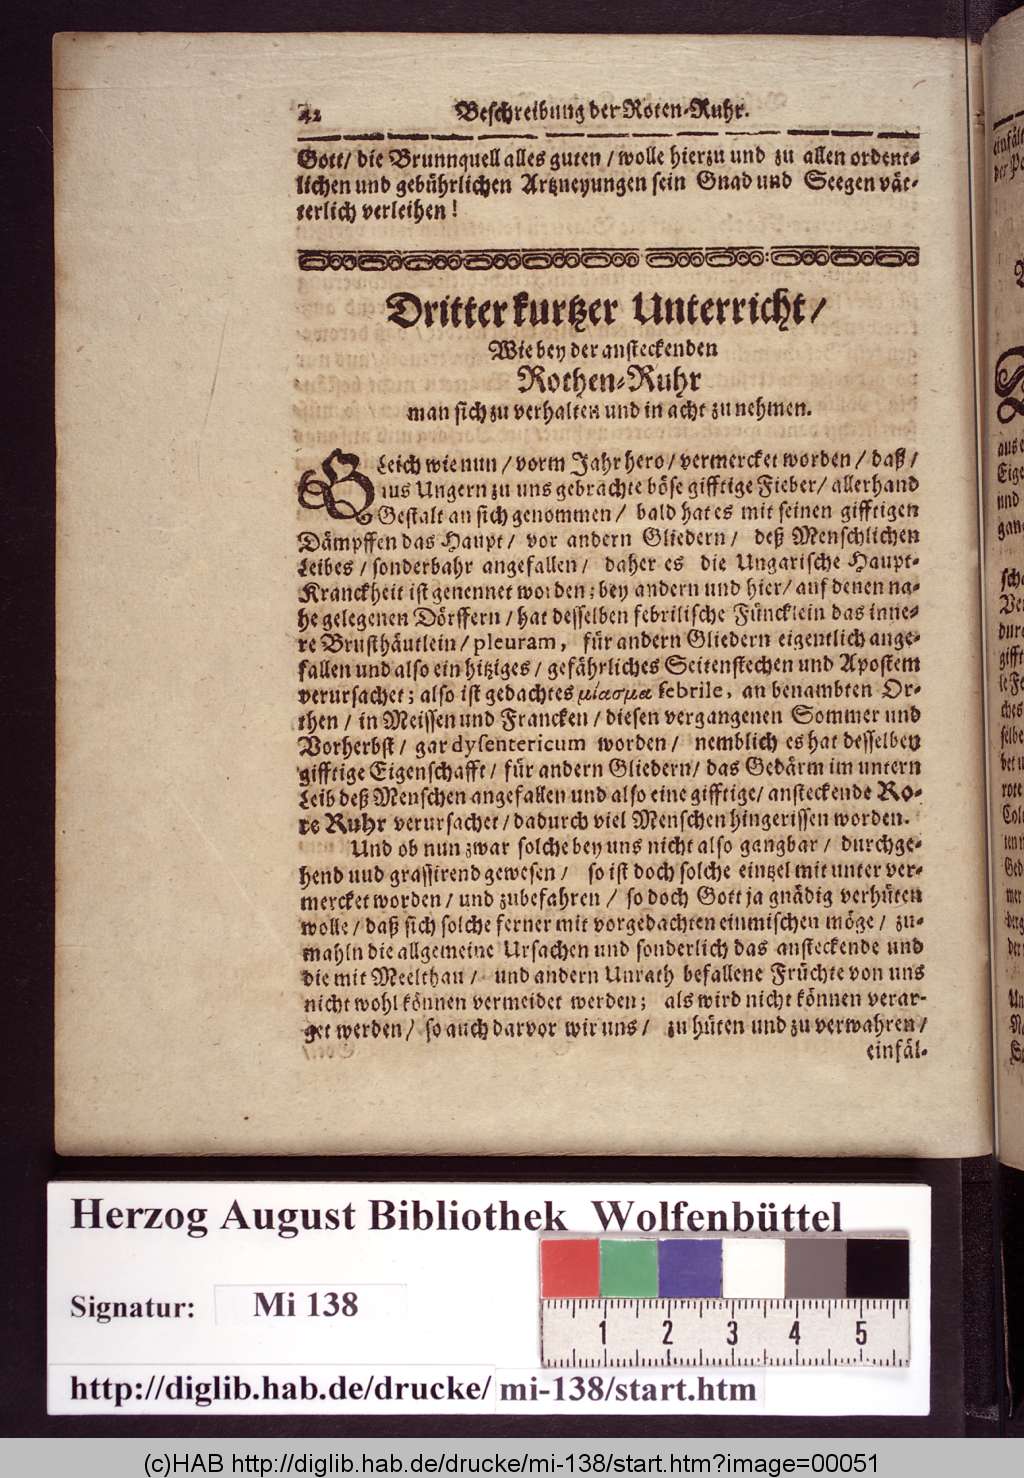 42 Beschreibung der Roten-Ruhr.
Gott/ die Brunnquell alles guten / wolle hierzu und zu allen ordent-
lichen und gebührlichen Artzneyungen sein Gnad und Seegen vät-
terlich verleihen!
Dritter kurtzer Unterricht /
Wie bey der ansteckenden
Rothen-Ruhr
man sich zu verhalten und in acht zu nehmen.
GLeich wie nun / vorm Jahr hero / vermercket worden / daß /
aus Ungern zu uns gebrachte böse gifftige Fieber/ allerhand
Gestalt an sich genommen / bald hat es mit seinen gifftigen
Dämpffen das Haupt/ vor andern Gliedern / deß Menschlichen
Leibes / sonderbahr angefallen / daher es die Ungarische Haupt-
Kranckheit ist genennet worden; bey andern und hier/ auf denen na-
he gelegenen Dörffern / hat desselben febrilische Füncklein das inne-
re Brusthäutlein / pleuram, für andern Gliedern eigentlich ange-
fallen und also ein hitziges / gefährliches Seitenstechen und Apostem
verursachet; also ist gedachtes μίασμα febrile, an benambten Or-
then / in Meissen und Francken / diesen vergangenen Sommer und
Vorherbst / gar dysentericum worden / nemblich es hat desselben
gifftige Eigenschafft / für andern Gliedern/ das Gedärm im untern
Leib deß Menschen angefallen und also eine gifftige/ ansteckende Ro-
te Ruhr verursachet / dadurch viel Menschen hingerissen worden.
Und ob nun zwar solche bey uns nicht also gangbar / durchge-
hend uud grassirend gewesen / so ist doch solche eintzel mit unter ver-
mercket worden / und zubefahren / so doch Gott ja gnädig verhüten
wolle / daß sich solche ferner mit vorgedachten einmischen möge / zu-
mahln die allgemeine Ursachen und sonderlich das ansteckende und
die mit Meelthau / und andern Unrath befallene Früchte von uns
nicht wohl können vermeidet werden; als wird nicht können verar-
get werden / so auch darvor wir uns / zu hüten und zu verwahren /
einfäl-
Herzog August Bibliothek Wolfenbüttel
Signatur: Mi 138
1 2 3 4 5
http://diglib.hab.de/drucke/ mi-138/start.htm
(c)HAB http://diglib.hab.de/drucke/mi-138/start.htm?image=00051